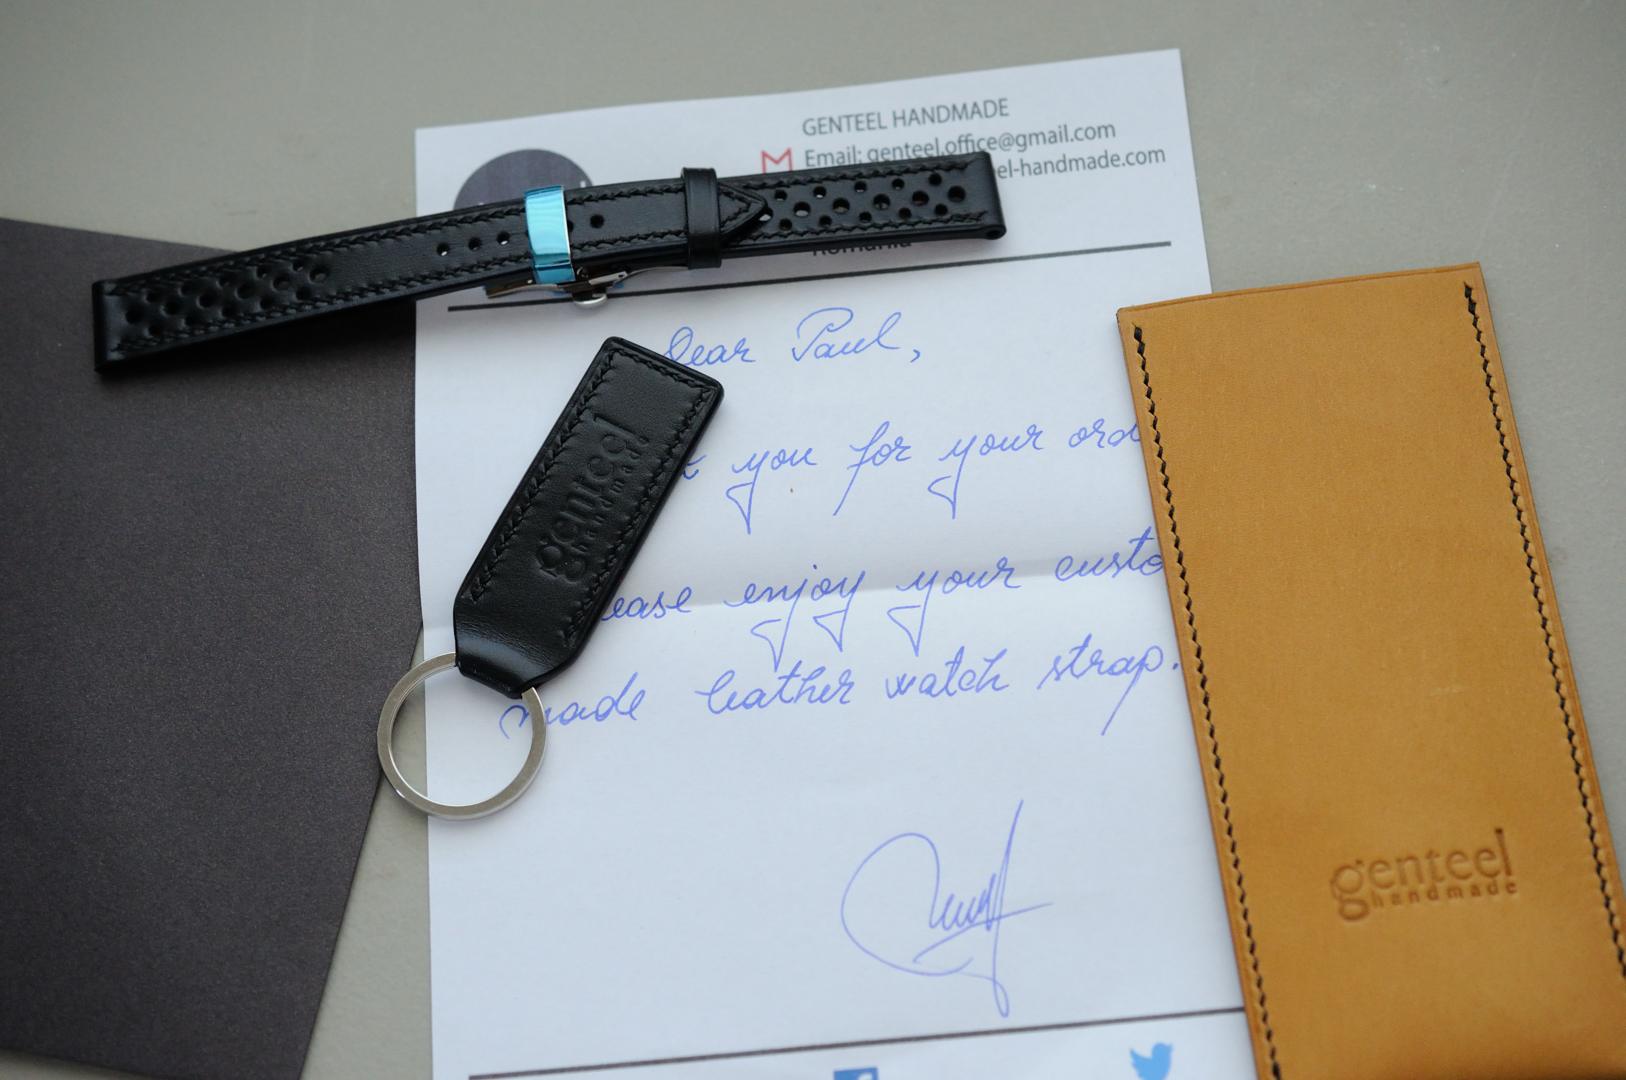 GENTEEL HANDMADE
Email: genteel.office@gmail.com
el-handmade.com
Romania
Dear Paul,
you for your ord
ease enjoy your custo
made leather watch strap.
genteel
handmade
genteel
handmade